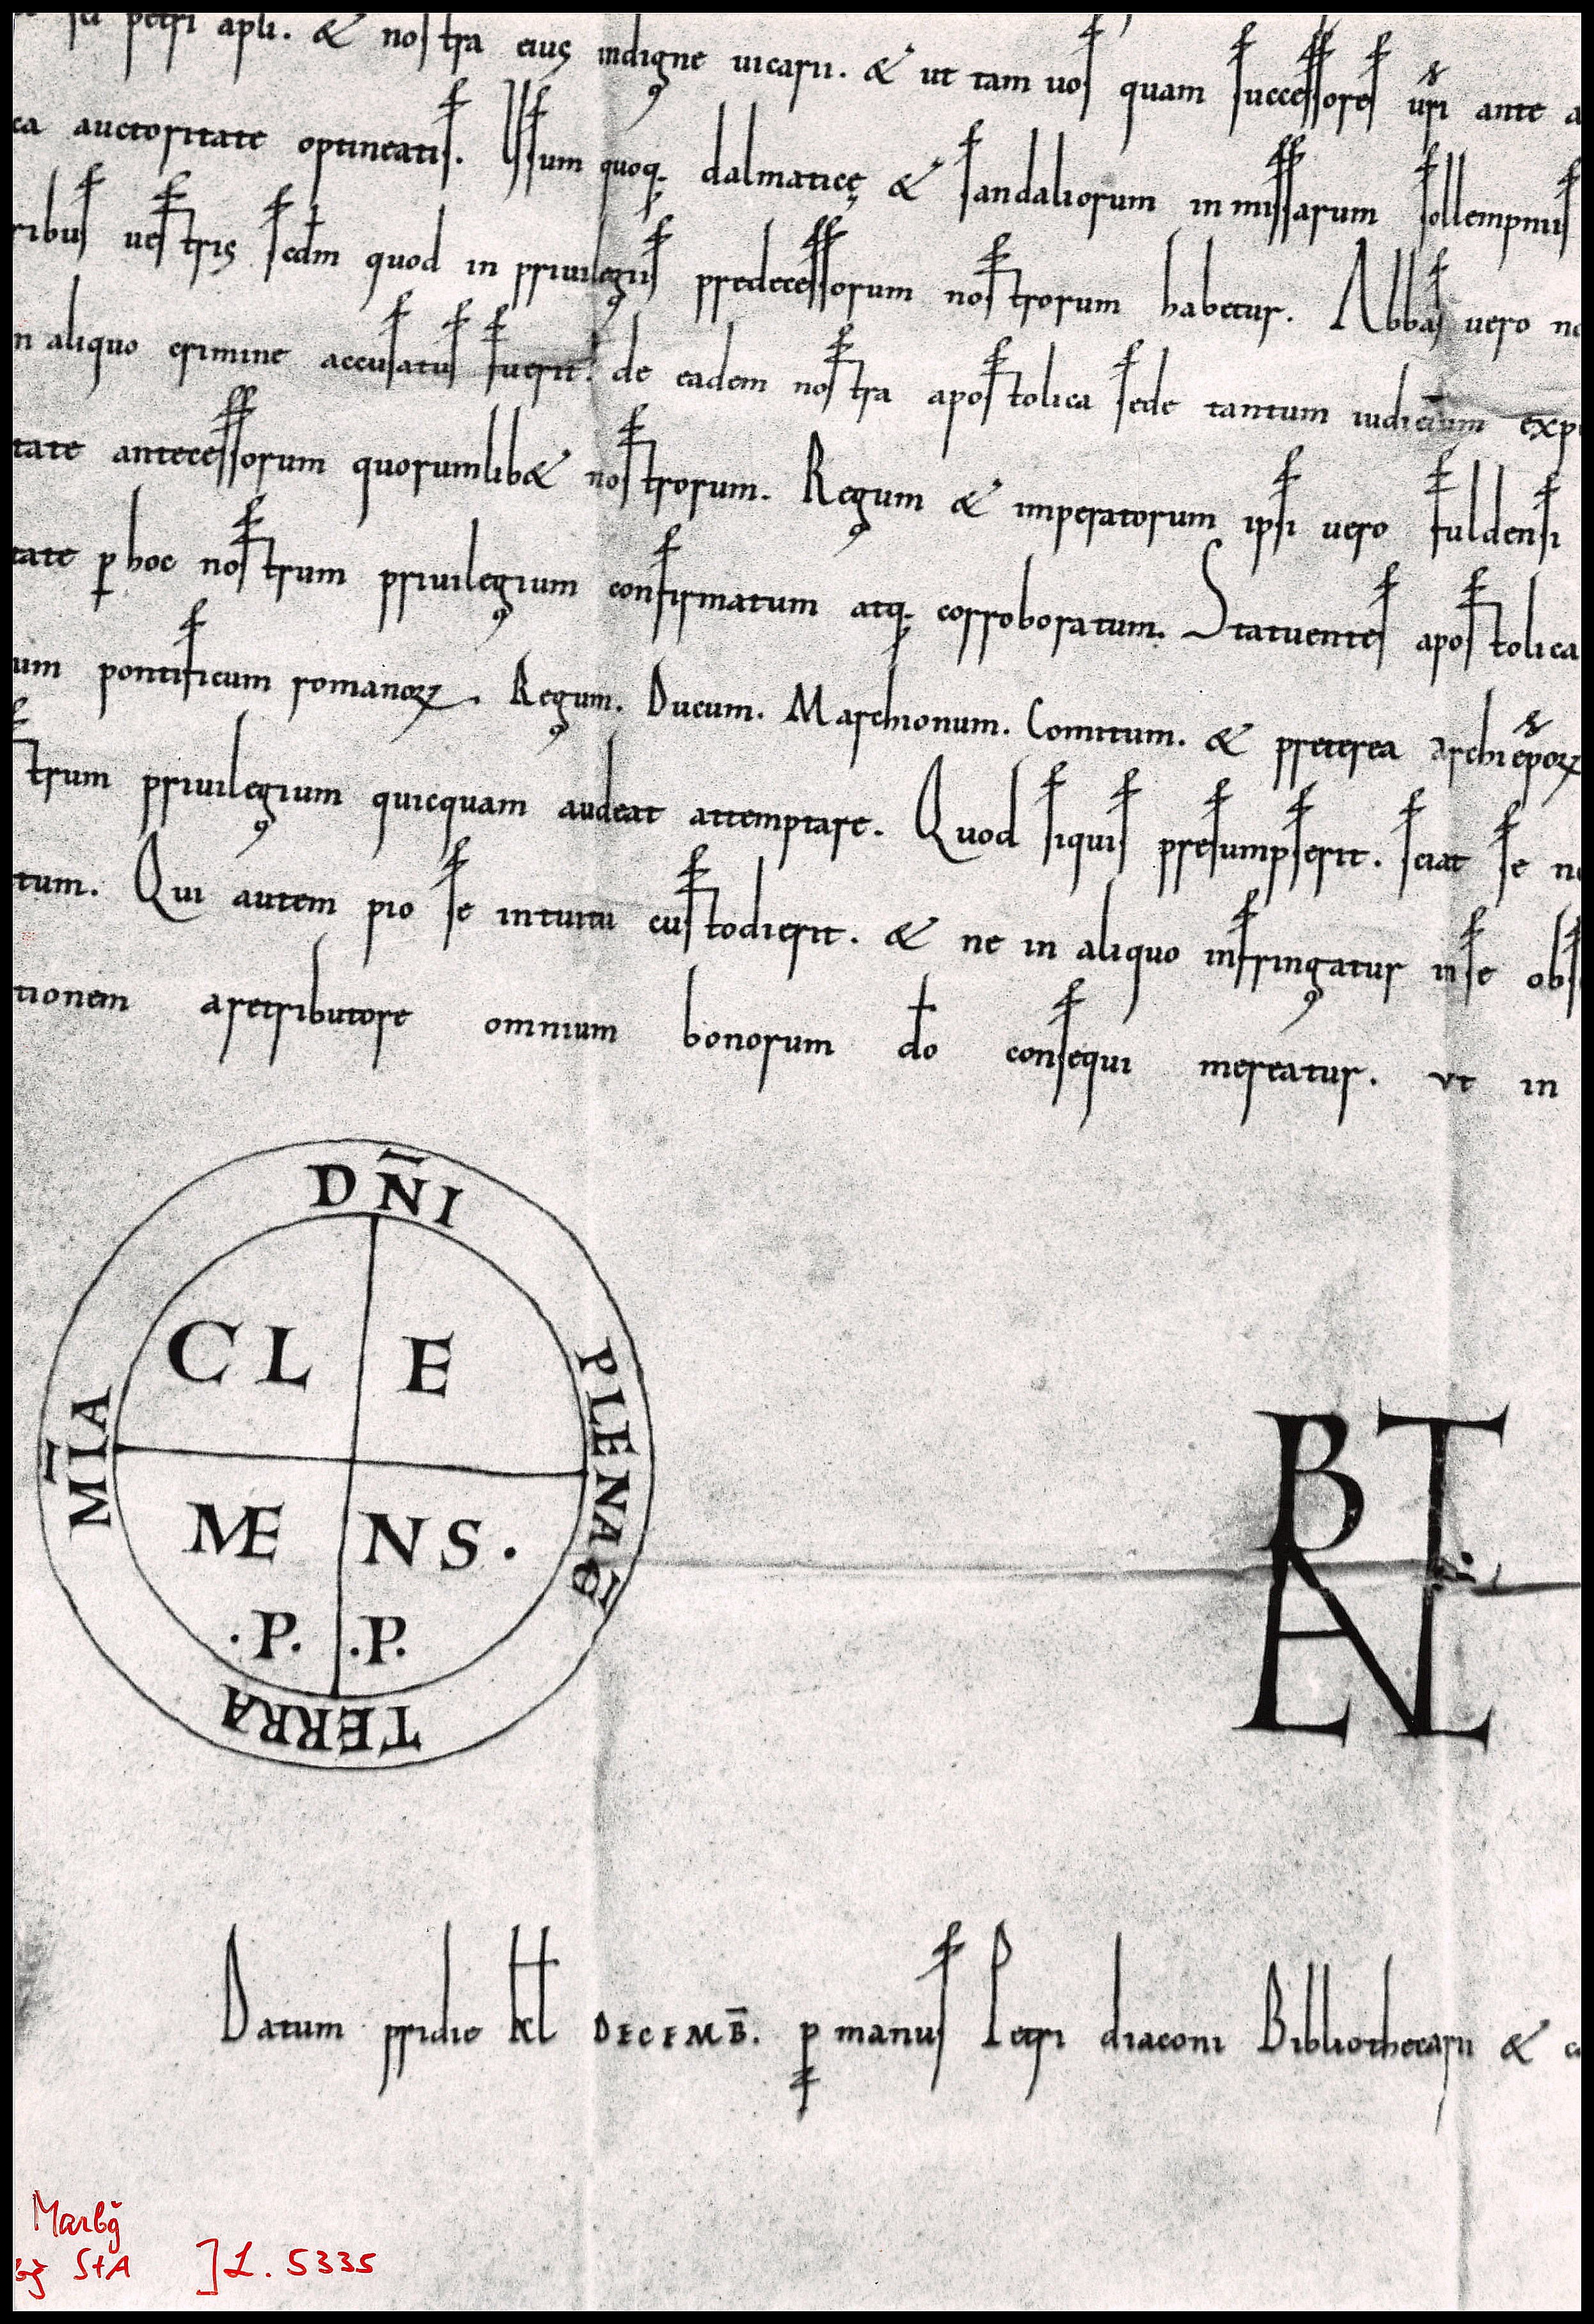 sci petri apli. & nostra eius indigne uicarii. & ut tam uos quam successores uri ante a
ca auctoritate optineatis. Usum quoq. dalmaticę & sandaliorum in missarum sollempnis
ribus uestris sedm quod in priuilegiis predecessorum nostrorum habetur. Abbas uero no
n aliquo crimine accusatus fuerit. de eadem nostra apostolica sede tantum iudicium exp
tate antecessorum quorumlib& nostrorum. Regum & imperatorum ipsi uero fuldensi
tate p hoc nostrum priuilegium confirmatum atq. corroboratum. Statuentes apostolica
um pontificum romanoꝝ. Regum. Ducum. Marchionum. Comitum. & preterea archiepoꝝ
strum priuilegium quicquam audeat attemptare. Quod siquis presumpserit. sciat se n
tum. Qui autem pio se intuitu custodierit. & ne in aliquo infringatur in se obs
tionem aretributore omnium bonorum do consequi mereatur. ut in
DÑI
PLENA
TERRA
M̄IA
CL E
ME NS.
.P. .P.
Datum pridie kl DECEMB̄. p manus Petri diaconi Bibliothecarii & c
Marbg
StA ] L. 5335